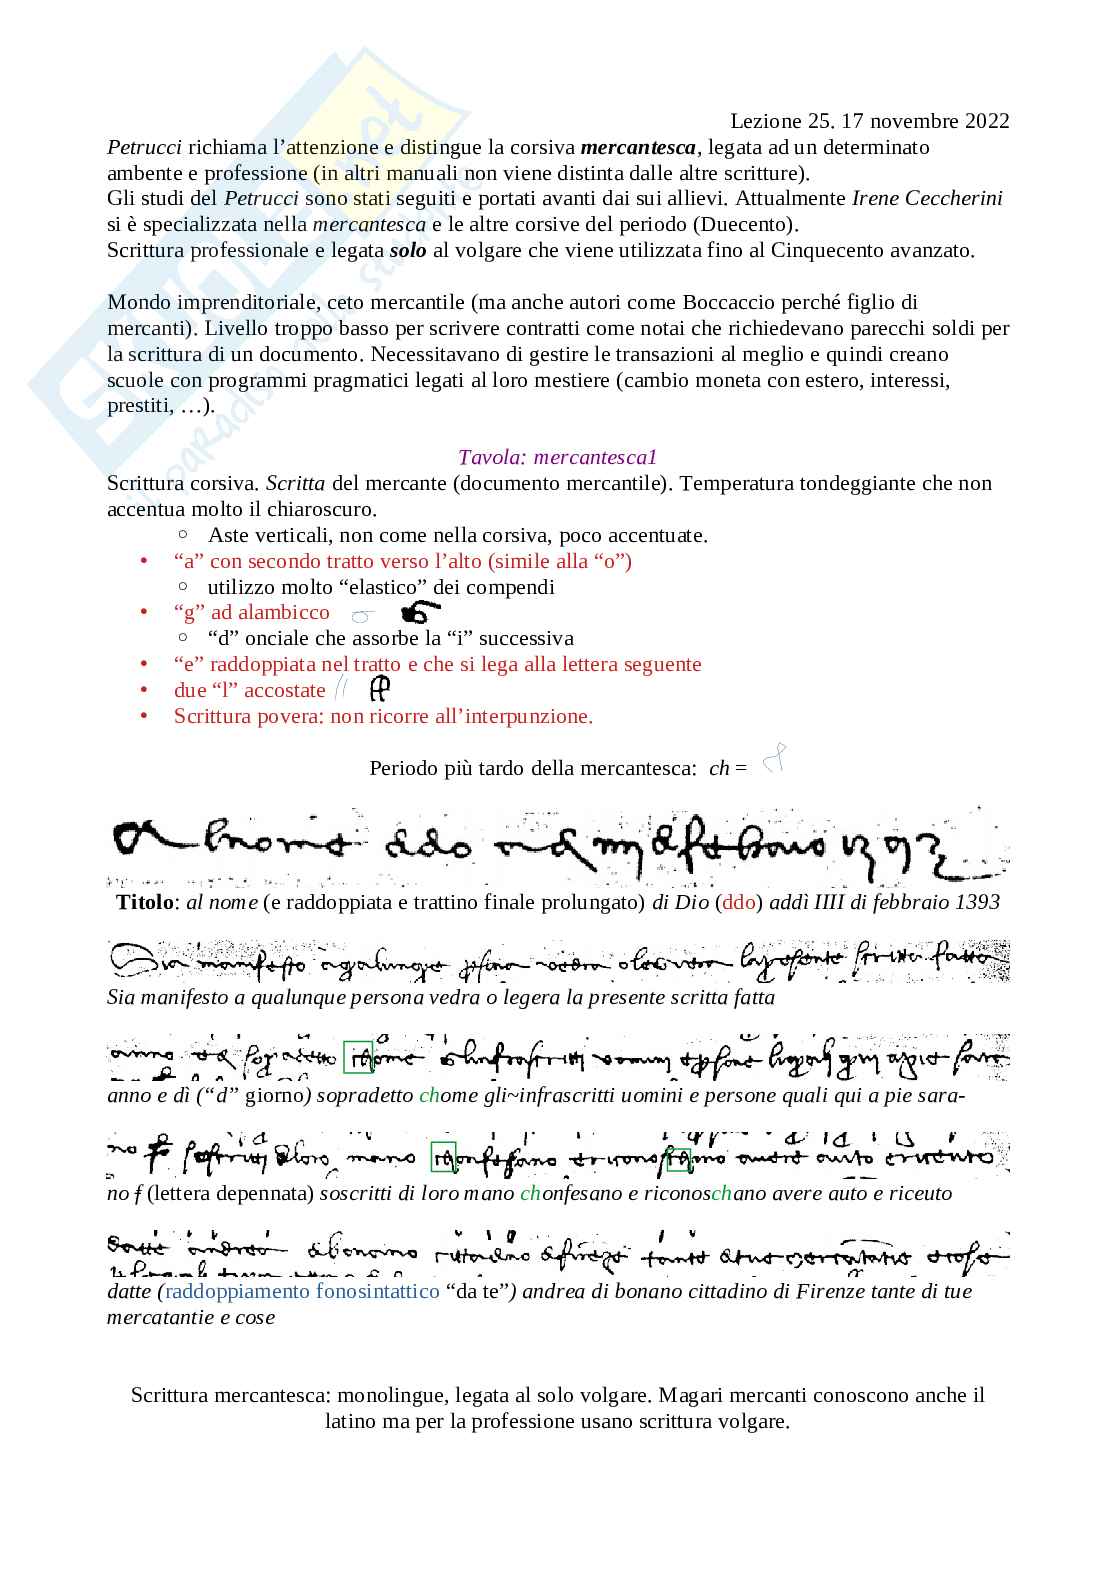 Lezione 25. 17 novembre 2022
Petrucci richiama l’attenzione e distingue la corsiva mercantesca, legata ad un determinato
ambente e professione (in altri manuali non viene distinta dalle altre scritture).
Gli studi del Petrucci sono stati seguiti e portati avanti dai sui allievi. Attualmente Irene Ceccherini
si è specializzata nella mercantesca e le altre corsive del periodo (Duecento).
Scrittura professionale e legata solo al volgare che viene utilizzata fino al Cinquecento avanzato.
Mondo imprenditoriale, ceto mercantile (ma anche autori come Boccaccio perché figlio di
mercanti). Livello troppo basso per scrivere contratti come notai che richiedevano parecchi soldi per
la scrittura di un documento. Necessitavano di gestire le transazioni al meglio e quindi creano
scuole con programmi pragmatici legati al loro mestiere (cambio moneta con estero, interessi,
prestiti, …).
Tavola: mercantesca1
Scrittura corsiva. Scritta del mercante (documento mercantile). Temperatura tondeggiante che non
accentua molto il chiaroscuro.
○ Aste verticali, non come nella corsiva, poco accentuate.
• “a” con secondo tratto verso l’alto (simile alla “o”)
○ utilizzo molto “elastico” dei compendi
• “g” ad alambicco
○ “d” onciale che assorbe la “i” successiva
• “e” raddoppiata nel tratto e che si lega alla lettera seguente
• due “l” accostate
• Scrittura povera: non ricorre all’interpunzione.
Periodo più tardo della mercantesca: ch =
Titolo: al nome (e raddoppiata e trattino finale prolungato) di Dio (ddo) addì IIII di febbraio 1393
Sia manifesto a qualunque persona vedra o legera la presente scritta fatta
anno e dì (“d” giorno) sopradetto chome gli~infrascritti uomini e persone quali qui a pie sara-
no f (lettera depennata) soscritti di loro mano chonfesano e riconoschano avere auto e riceuto
datte (raddoppiamento fonosintattico “da te”) andrea di bonano cittadino di Firenze tante di tue
mercatantie e cose
Scrittura mercantesca: monolingue, legata al solo volgare. Magari mercanti conoscono anche il
latino ma per la professione usano scrittura volgare.
SKUOLA.net
il paradiso dello studente